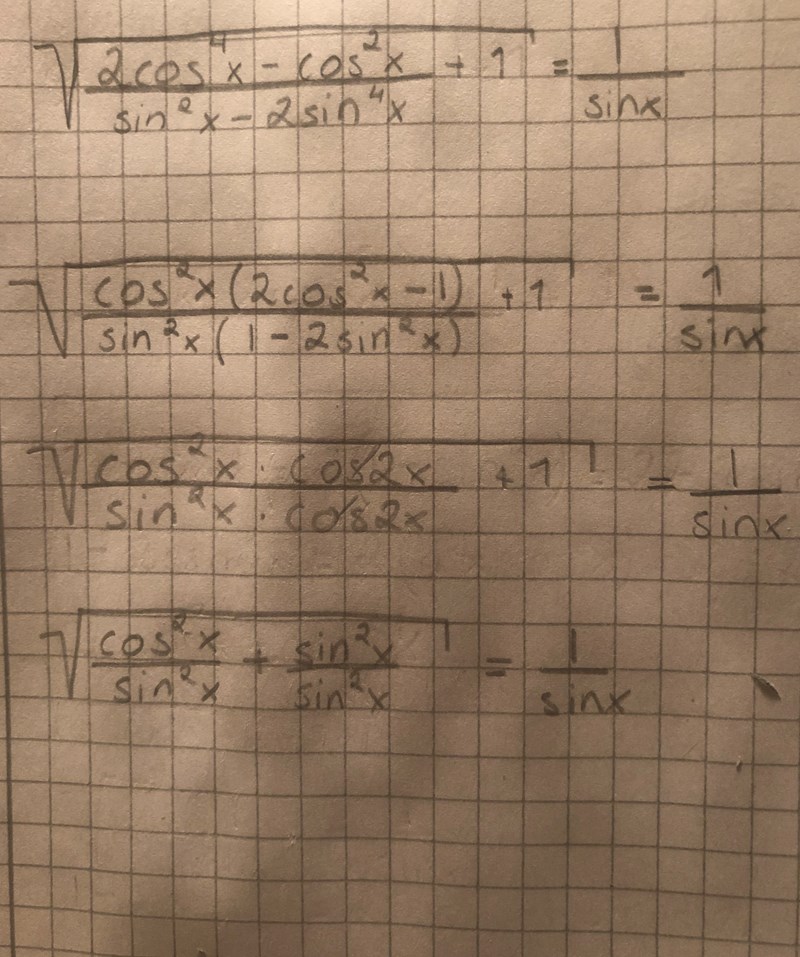 √((2cos⁴x - cos²x)/(sin²x - 2sin⁴x) + 1) = 1/sinx
√((cos²x(2cos²x - 1))/(sin²x(1 - 2sin²x)) + 1) = 1/sinx
√((cos²x · cos2x)/(sin²x · cos2x) + 1) = 1/sinx
√(cos²x/sin²x + sin²x/sin²x) = 1/sinx